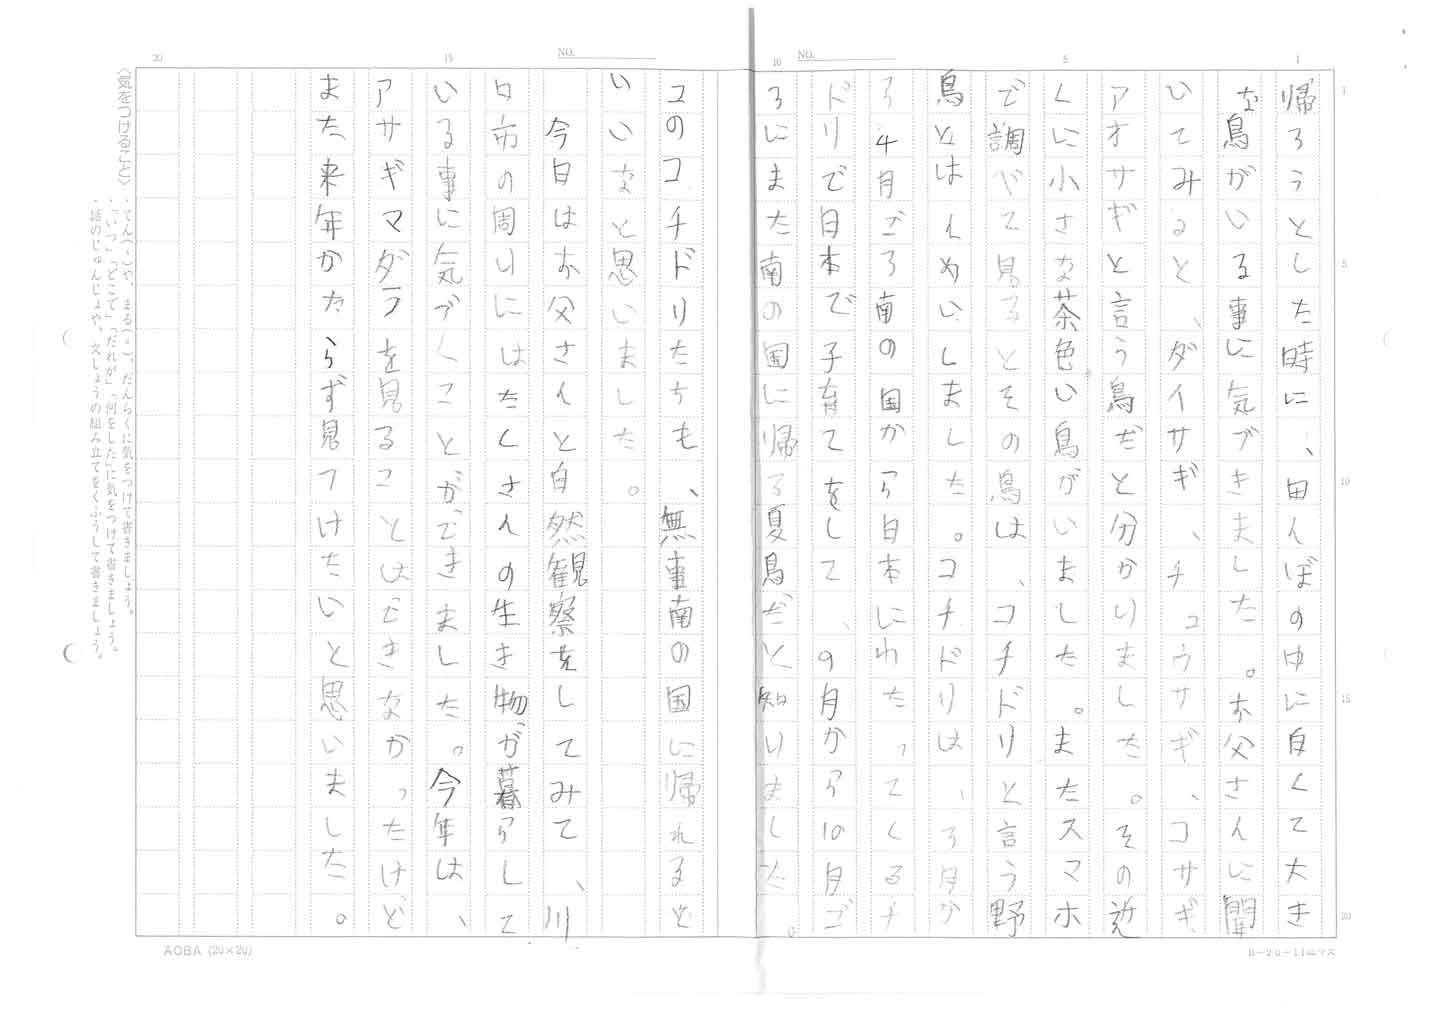 帰ろうとした時に、田んぼの中に白くて大き
な鳥がいる事に気づきました。お父さんに聞
いてみると、ダイサギ、チュウサギ、コサギ
アオサギと言う鳥だと分かりました。その近
くに小さな茶色い鳥がいました。またスマホ
で調べて見るとその鳥は、コチドリと言う野
鳥とはんめいしました。コチドリは、3月か
ら4月ごろ南の国から日本にわたってくるチ
ドリで日本で子育てをして、の月から10月ご
ろにまた南の国に帰る夏鳥だと知りました。
コのコチドリたちも、無事南の国に帰れると
いいなと思いました。
今日はお父さんと自然観察をしてみて、川
口市の周りにはたくさんの生き物が暮らして
いる事に気づくことができました。今年は、
アサギマダラを見ることはできなかったけど
また来年かたらず見つけたいと思いました。
〈気をつけること〉
・てん（、）や、まる（。）、だんらくに気をつけて書きましょう。
・「いつ」「どこで」「だれが」「何をした」に気をつけて書きましょう。
・話のじゅんじょや、文しょうの組み立てをくふうして書きましょう。
NO.
NO.
20
15
10
5
1
1
5
10
15
20
AOBA (20×20)